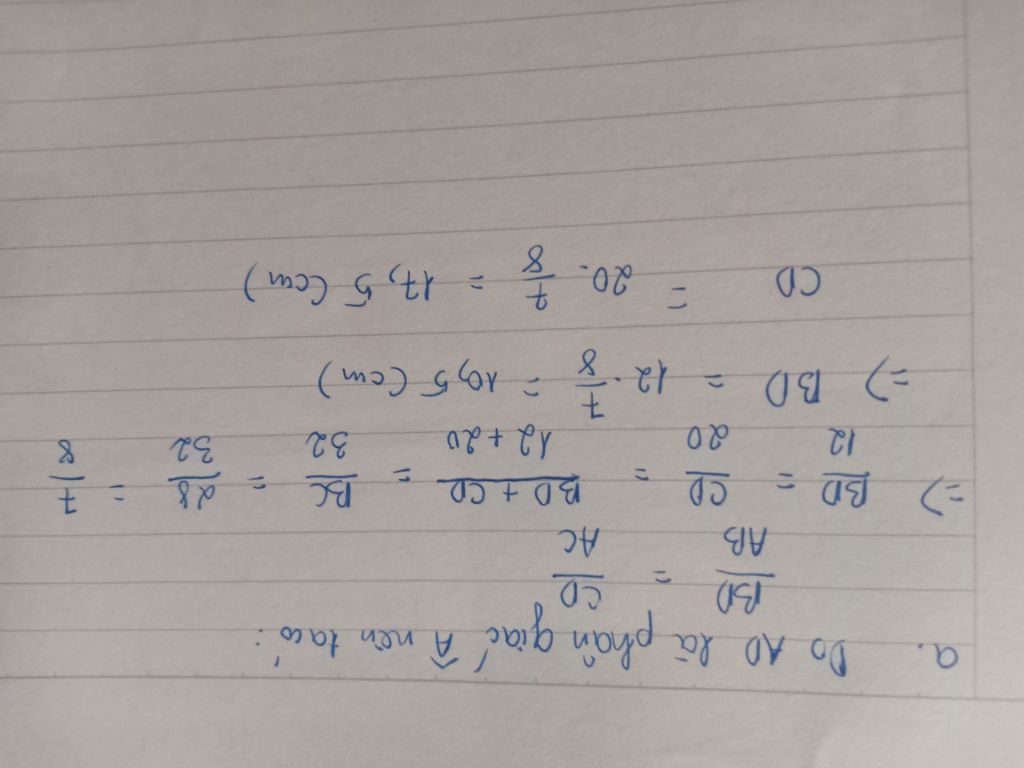 a. Do AD là phân giác Â nên ta có:
BD/AB = CD/AC
=> BD/12 = CD/20 = BD + CD/12 + 20 = BC/32 = 28/32 = 7/8
=> BD = 12 . 7/8 = 10,5 (cm)
CD = 20 . 7/8 = 17,5 (cm)